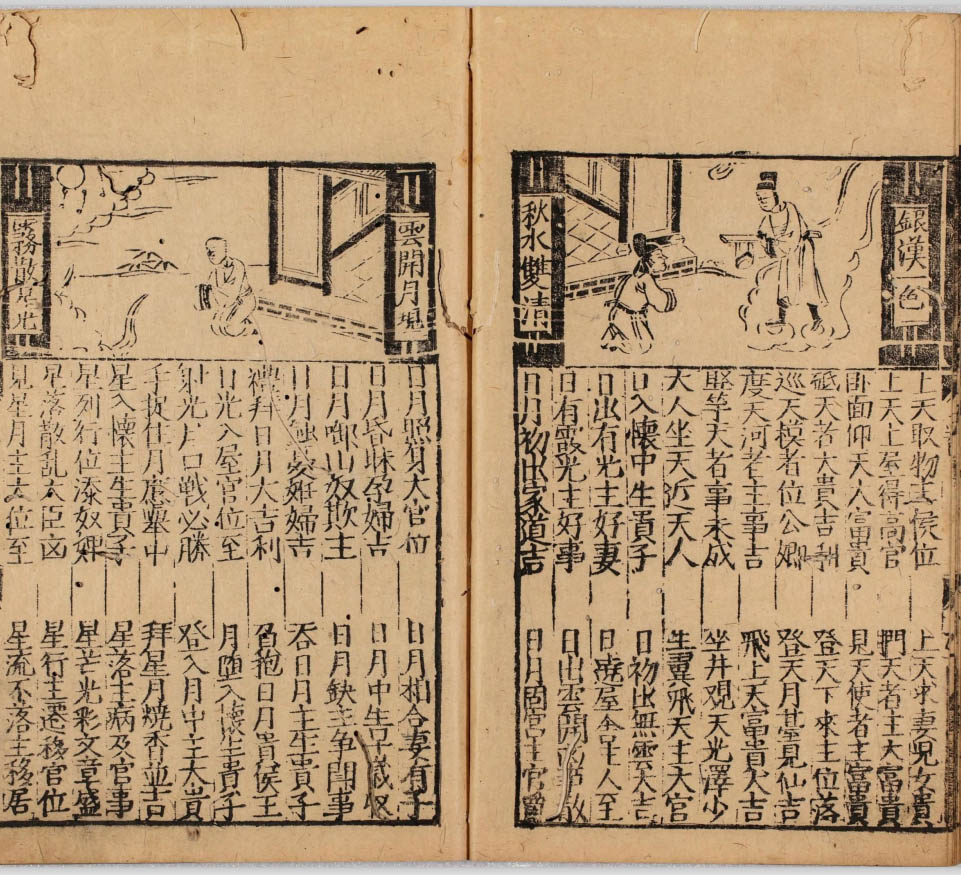 銀漢色
秋水雙清
上天取物主侯位
上天上屋得高官
卧面仰天大富貴
砥天者大貴吉
巡天模者位公卿
度天河者主事吉
竪竿天者事未成
大人坐天近天人
日入懷中生貴子
日出有光主好妻
日有霞光主好事
日月初出家道吉
上天求妻児女貴
門天者主大富貴
見天使者主富貴
登天下來主位落
登天月甚見仙吉
飛上天富貴大吉
坐井觀天光澤少
生翼飛天主大官
日初出無雲大吉
日繞屋舍主人至
日出雲開
日月宮主官
雲開月現
霧散星光
日月照身大官位
日月昏昧孕婦吉
日月啣山奴欺主
日月孕婦吉
禮拜日月大吉利
日光入屋官位至
射光月口戰必勝
手捉住月
星入懷主生貴子
星列行位添奴婢
星落散亂大臣凶
見星月主大位至
日月相合妻有子
日月中
日月缺主争閙事
吞日月主生貴子
抱日月貴侯王
月墮入懷生貴子
登入月中主大貴
拜星月燒香並吉
星落主病及官事
星芒光彩文章盛
星行主遷移官位
星流不落主移居